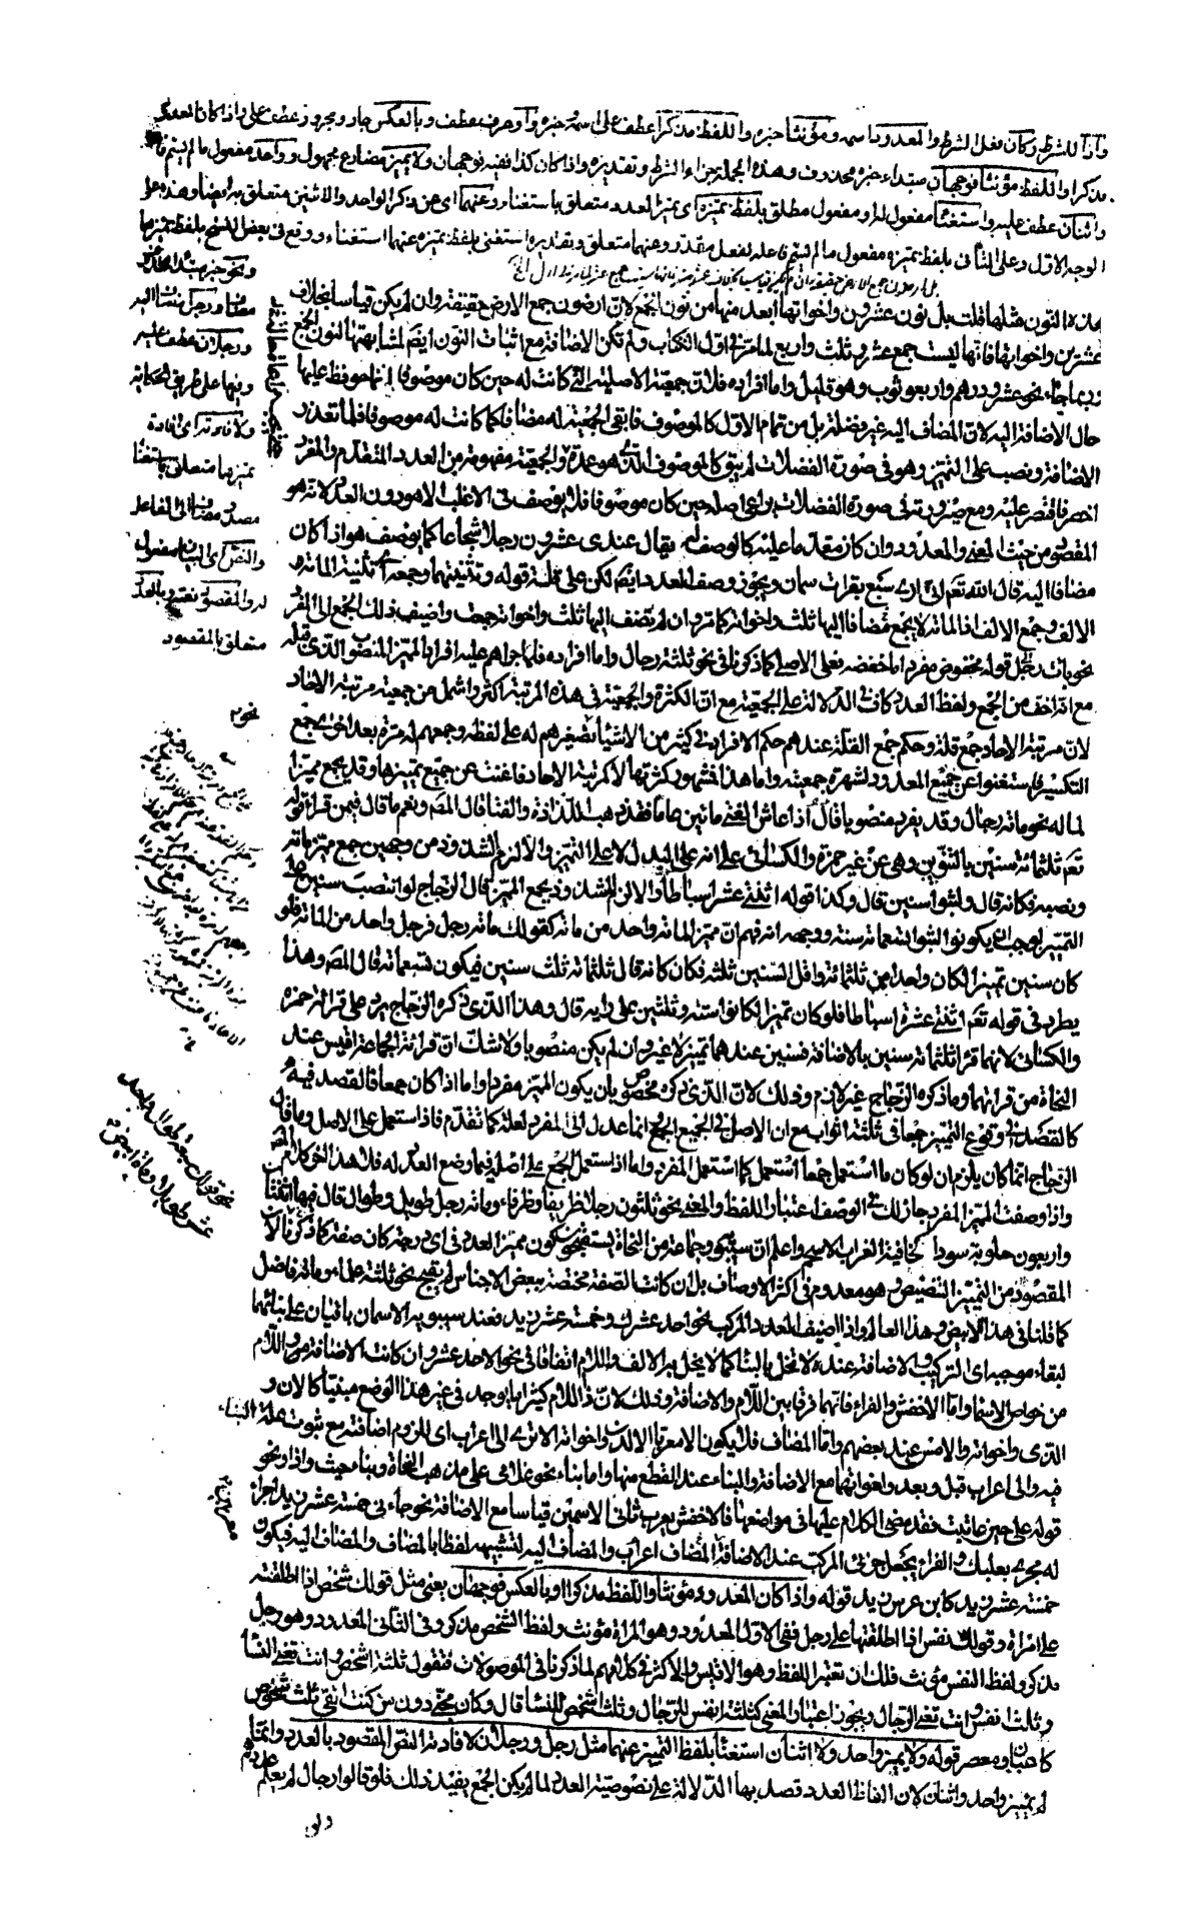 واذا للشرط وكان فعل الشرط والمعدود اسمه ومؤنثا خبره واللفظ مذكرا عطف على اسمه وخبره واو حرف عطف وبالعكس جار ومجرور عطف على واذا كان المعدود
مذكرا واللفظ مؤنثا فوجهان مبتداء خبره محذوف وهذه الجملة جزاء الشرط وتقديره واذا كان كذا ففيه وجهان ولا يميز مضارع مجهول وواحد مفعول ما لم يسم فاعله
واثنان عطف عليه واستغناء مفعول له او مفعول مطلق بلفظ تميزه اى تميز العدد متعلق باستغناء وعنهما اى عن ذكر الواحد والاثنين متعلق به ايضا وهذه على
الوجه الاول وعلى الثانى بلفظ تميزه مفعول ما لم يسم فاعله لفعل مقدر وعنهما متعلق وتقديره استغنى بلفظ تميزه عنهما استغناء ووقع فى بعض النسخ بلفظ تميزها
هذه النون مثلها قلت بل نون عشرون واخواتها ابعد منها من نون الجمع لان ارضون جمع الارض حقيقة وان لم يكن قياسا بخلاف
عشرين واخواتها فانها ليست جمع عشر وثلث واربع لما مر فى اول الكتاب ولم تكن الاضافة مع اثبات النون ايضا لمشابهتها لنون الجمع
ربما جاء نحو عشرو درهم واربعو ثوب وهو قليل واما افراده فلان جمعيته الاصلية التى كانت له حين كان موصوفا انما حوفظ عليها
حال الاضافة اليه لان المضاف اليه غير فضلة بل من تمام الاول كالموصوف فابقى الجمعية له مضافا كما كانت له موصوفا فلما تعذر
الاضافة ونصب على التميز وهو فى صورة الفضلات لم يبق كالموصوف الذى هو عمدة والجمعية مفهومة من العدد المتقدم والمفرد
اخصر فاقتصر عليه ومع صيرورته فى صورة الفضلات يراعى اصله حين كان موصوفا فلا يوصف فى الاغلب الا هو دون العدد لانه هو
المقصود من حيث المعنى والمعدود وان كان مقدما عليه كالوصف له يقال عندى عشرون رجلا شجاعا كما يوصف هو اذا كان
مضافا اليه قال الله تعم انى ارى سبع بقرات سمان ويجوز وصف العدد ايضا لكن على قلة قوله وتثنيتهما وجمعه اى تثنية المائة و
الالف وجمع الالف اذ المائة لا يجمع مضافا اليها ثلث واخواته كما مر وان لم تضف اليها ثلث واخواته جمعت واضيف ذلك الجمع الى المفرد
نحو مئات رجل قوله مخفوض مفرد اما خفضه فعلى الاصل كما ذكرنا فى نحو ثلثة رجال واما افراده فلما جراهم عليه افراد المميز المنصوب الذى قبله
مع انه اخف من الجمع ولفظ العدد كاف فى الدلالة على الجمعية مع ان الكثرة والجمعية فى هذه المرتبة اكثر واشمل من جمعية مرتبة الاحاد
لان مرتبة الاحاد جمع قلة وحكم جمع القلة عندهم حكم الافراد فى كثير من الاشياء تصغيرهم له على لفظه وجمعهم له مرة بعد اخرى جمع
التكسير فاستغنوا عن جميع المعدود لشهرة جمعيته واما هذا فشهود كثرتها لا كمرتبة الاحاد فاغنت عن جميع تميزها وقد يجمع مميزا
لمائة نحو مائة رجال وقد يفرد منصوبا قال اذا عاش الفتى مائتين عاما فقد ذهب اللذاذة والفتا قال المص ونعم ما قال فيمن قرا قوله
تعم ثلثمائة سنين بالتنوين وهى عن غير حمزة والكسائى على انه على البدل لا على التميز والا لزم الشذوذ من وجهين جمع مميز مائة
ونصبه فكانه قال ولبثوا سنين قال وكذا قوله اثنتى عشرة اسباطا والا لزم الشذوذ بجمع المميز قال الزجاج لو انتصب سنين على
التميز لوجب ان يكونوا لبثوا تسعمائة سنة ووجهه انه فهم ان مميز المائة واحد من مائة كقولك مائة رجل فرجل واحد من المائة فلو
كان سنين تميزا لكان واحدا من ثلثمائة واقل السنين ثلثة فكان كانه قال ثلثمائة ثلث سنين فيكون تسعمائة قال المص وهذا
يطرد فى قوله تعم اثنتى عشرة اسباطا فلو كان تميزا لكانوا ستة وثلثين على رايه قال وهذا الذى ذكره الزجاج يرد على قراءة حمزة
والكسائى لانهما قرا ثلثمائة سنين بالاضافة فسنين عندهما تميز لا غير وان لم يكن منصوبا ولا شك ان قراءة الجماعة اقيس عند
النحاة من قراءتهما وما ذكره الزجاج غير لازم وذلك لان الذى ذكره مخصوص بان يكون المميز مفردا واما اذا كان جمعا فالقصد فيه
كالقصد فى وقوع التميز جمعا فى ثلثة اثواب مع ان الاصل فى الجميع الجمع انما عدل الى المفرد لعلة كما تقدم فاذا استعمل على الاصل وما قاله
الزجاج انما كان يلزم ان لو كان ما استعمل جمعا استعمل كما استعمل المفرد واما اذا استعمل الجمع على اصله فيما وضع العدد له فلا هذا اخر كلام المص
واذا وصفت المميز المفرد جاز لك فى الوصف اعتبار اللفظ والمعنى نحو ثلثون رجلا ظريفا وظرفاء ومائة رجل طويل وطوال قال فيها اثنتان
واربعون حلوبة سودا كخافية الغراب الاسحم واعلم ان سيبويه وجماعة من النحاة يستقبحون كون مميز العدد فى اى درجة كان صفة كما ذكرنا لان
المقصود من التميز التنصيص وهو معدوم فى اكثر الاوصاف بل ان كانت الصفة مختصة ببعض الاجناس لم يقبح نحو ثلثة علماء ومائة فاضل
كما قلنا فى هذا الابيض وهذا العالم واذا اضيف العدد المركب نحو احد عشرك وخمسة عشر زيد فعند سيبويه الاسمان باقيان على بنائهما
لبقاء موجبه اى التركيب والاضافة عنده لا تخل بالبناء كما لا يخل به الالف واللام اتفاقا فى نحو الاحد عشر وان كانت الاضافة واللام
من خواص الاسماء واما الاخفش والفراء فانهما فرقا بين اللام والاضافة وذلك لان ذا اللام كثيرا ما يوجد فى غير هذا الوضع مبنيا كالان و
الذى واخواته والامس عند بعضهم واما المضاف فلا يكون الا معربا الا لدن واخواته الا ترى الى اعراب اى للزوم اضافته مع ثبوت علة البناء
فيه والى اعراب قبل وبعد واخواتهما مع الاضافة والبناء عند القطع منها واما بناء نحو غلامى على مذهب النحاة وبناء حيث واذا ونحو
قوله على حين عاتبت فقد مضى الكلام عليها فى مواضعها فالاخفش يعرب ثانى الاسمين قياسا مع الاضافة نحو جاءنى خمسة عشر زيد اجراء
له مجرى بعلبك والفراء يجعل جزئى المركب عند الاضافة المضاف اعراب والمضاف اليه لتشبيهه لفظا بالمضاف والمضاف اليه فيكون
خمسة عشر زيد كابن عرس زيد قوله واذا كان المعدود مؤنثا واللفظ مذكرا او بالعكس فوجهان يعنى مثل قولك شخص اذا اطلقته
على امراة وقولك نفس اذا اطلقتها على رجل ففى الاول المعدود وهو المراة مؤنث ولفظ الشخص مذكر وفى الثانى المعدود وهو رجل
مذكر ولفظ النفس مؤنث فلك ان تعتبر اللفظ وهو الاقيس والاكثر فى كلامهم لما ذكرنا فى الموصولات فتقول ثلثة اشخص وانت تعنى النساء
وثلث انفس وانت تعنى الرجال ويجوز اعتبار المعنى كثلثة انفس للرجال وثلث اشخص للنساء قال وكان مجنى دون من كنت اتقى ثلث شخوص
كاعبان ومعصر قوله ولا يميز واحد ولا اثنان استغناء بلفظ التميز عنهما مثل رجل ورجلان لافادته النص المقصود بالعدد وانما
لم يميز واحد واثنان لان الفاظ العدد قصد بها الدلالة على نصوصية العدد لما لم يكن الجمع يفيد ذلك فلو قالوا رجال لم يعلم عددهم
ونحو خبر مبتداء محذوف
مضاف ورجل مضاف اليه
ورجلان عطف عليه
وبنهما على طريق الحكاية
ولافادته اى افادة
تميزهما متعلق باستغناء
مصدر مضاف الى الفاعل
والنص
له والمقصود نعته وبالعدد
متعلق بالمقصود